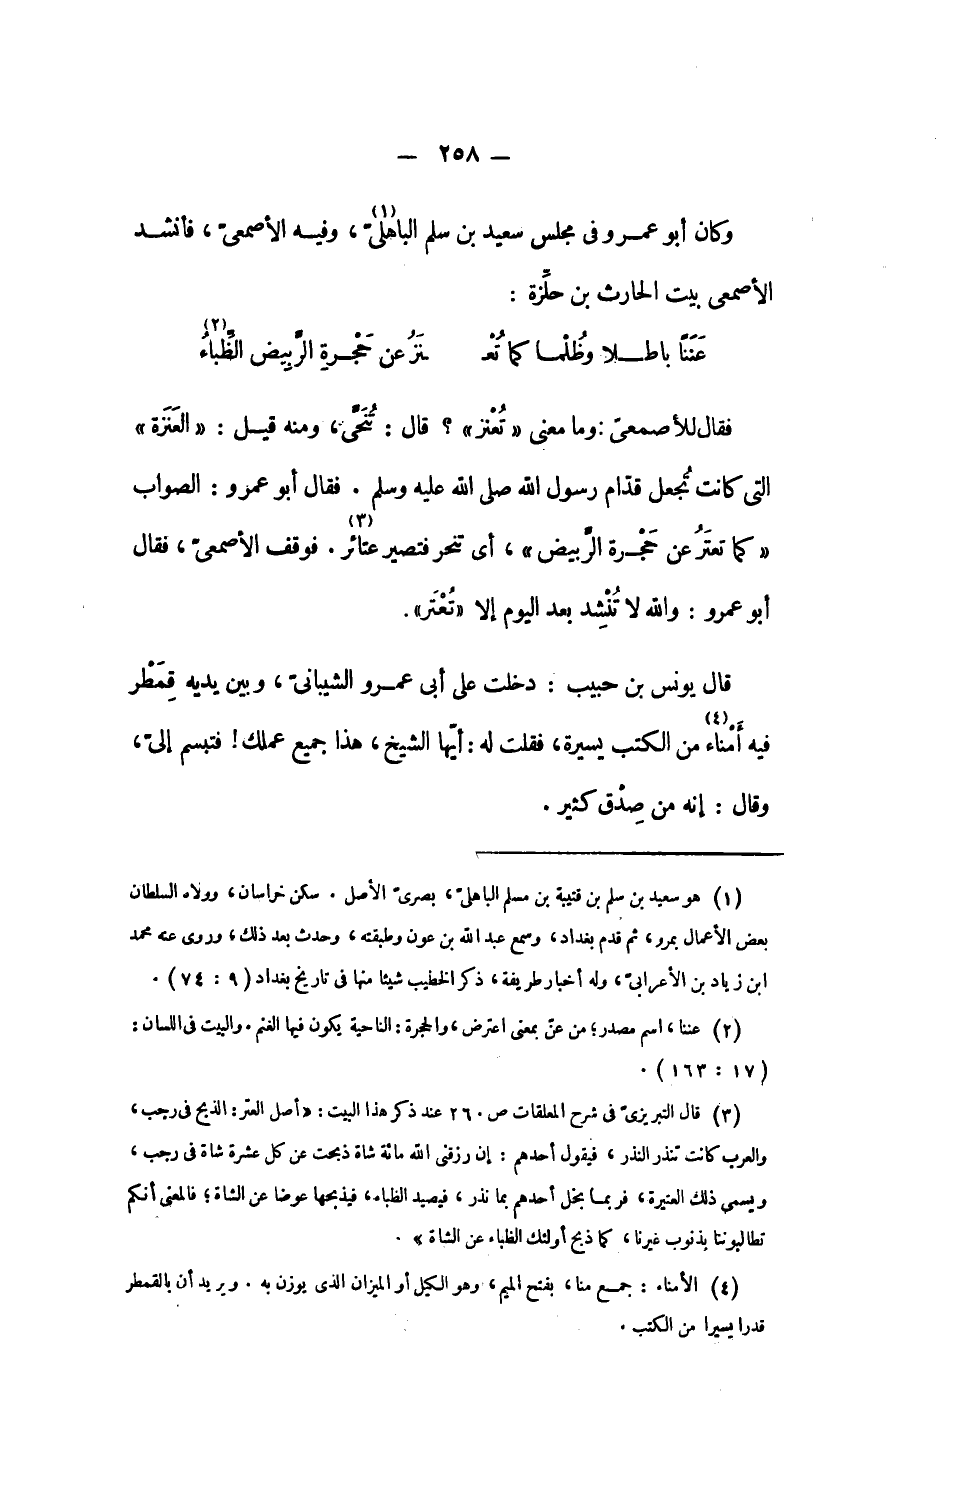 — ٢٥٨ —
وكان أبو عمـرو فى مجلس سعيد بن سلم الباهلىّ (١) ، وفيـه الأصمعىّ ، فأنشـد
الأصمعى بيت الحارث بن حلِّزة :
عَنَنًا باطـلا وظُلْمـا كما تُعْـ ـنَزُ عن حَجْـرةِ الرَّبِيض الظِّباءُ (٢)
فقال للأصمعىّ : وما معنى « تُعْنز » ؟ قال : تُنَحَّى ، ومنه قيـل : « العَنَزَة »
التى كانت تُجعل قدّام رسول الله صلى الله عليه وسلم . فقال أبو عمرو : الصواب
« كما تعتَرُ عن حَجْـرة الرَّبيض » ، أى تنحر فتصير عتائر (٣) . فوقف الأصمعىّ ، فقال
أبو عمرو : والله لا تُنْشِد بعد اليوم إلا « تُعْتَر ».
قال يونس بن حبيب : دخلت على أبى عمـرو الشيبانىّ ، وبين يديه قِمَطْر
فيه أَمْناء (٤) من الكتب يسيرة ، فقلت له : أيّها الشيخ ، هذا جميع عملك ! فتبسم إلىّ ،
وقال : إنه من صِدْق كثير .
(١) هو سعيد بن سلم بن قتيبة بن مسلم الباهلىّ ، بصرىّ الأصل . سكن خراسان ، وولاه السلطان
بعض الأعمال بمرو ، ثم قدم بغداد ، وسمع عبد الله بن عون وطبقته ، وحدث بعد ذلك ، وروى عنه محمد
ابن زياد بن الأعرابىّ ، وله أخبار طريفة ، ذكر الخطيب شيئا منها فى تاريخ بغداد ( ٩ : ٧٤ ) .
(٢) عننا ، اسم مصدر ؛ من عنّ بمعنى اعترض ، والحجرة : الناحية يكون فيها الغنم . والبيت فى اللسان :
( ١٧ : ١٦٣ ) .
(٣) قال التبريزىّ فى شرح المعلقات ص ٢٦٠ عند ذكر هذا البيت : « أصل العتر : الذبح فى رجب ،
والعرب كانت تنذر النذر ، فيقول أحدهم : إن رزقنى الله مائة شاة ذبحت عن كل عشرة شاة فى رجب ،
ويسمى ذلك العتيرة ، فربمـا بخل أحدهم بما نذر ، فيصيد الظباء ، فيذبحها عوضا عن الشاة ؛ فالمعنى أنكم
تطالبوننا بذنوب غيرنا ، كما ذبح أولئك الظباء عن الشاة » .
(٤) الأمناء : جمـع منا ، بفتح الميم ، وهو الكيل أو الميزان الذى يوزن به . ويريد أن بالقمطر
قدرا يسيرا من الكتب .